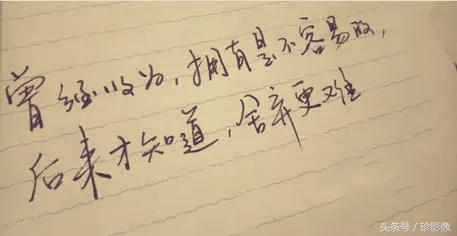 曾经以为，拥有是不容易的，
后来才知道，舍弃更难
头条号/珍影像